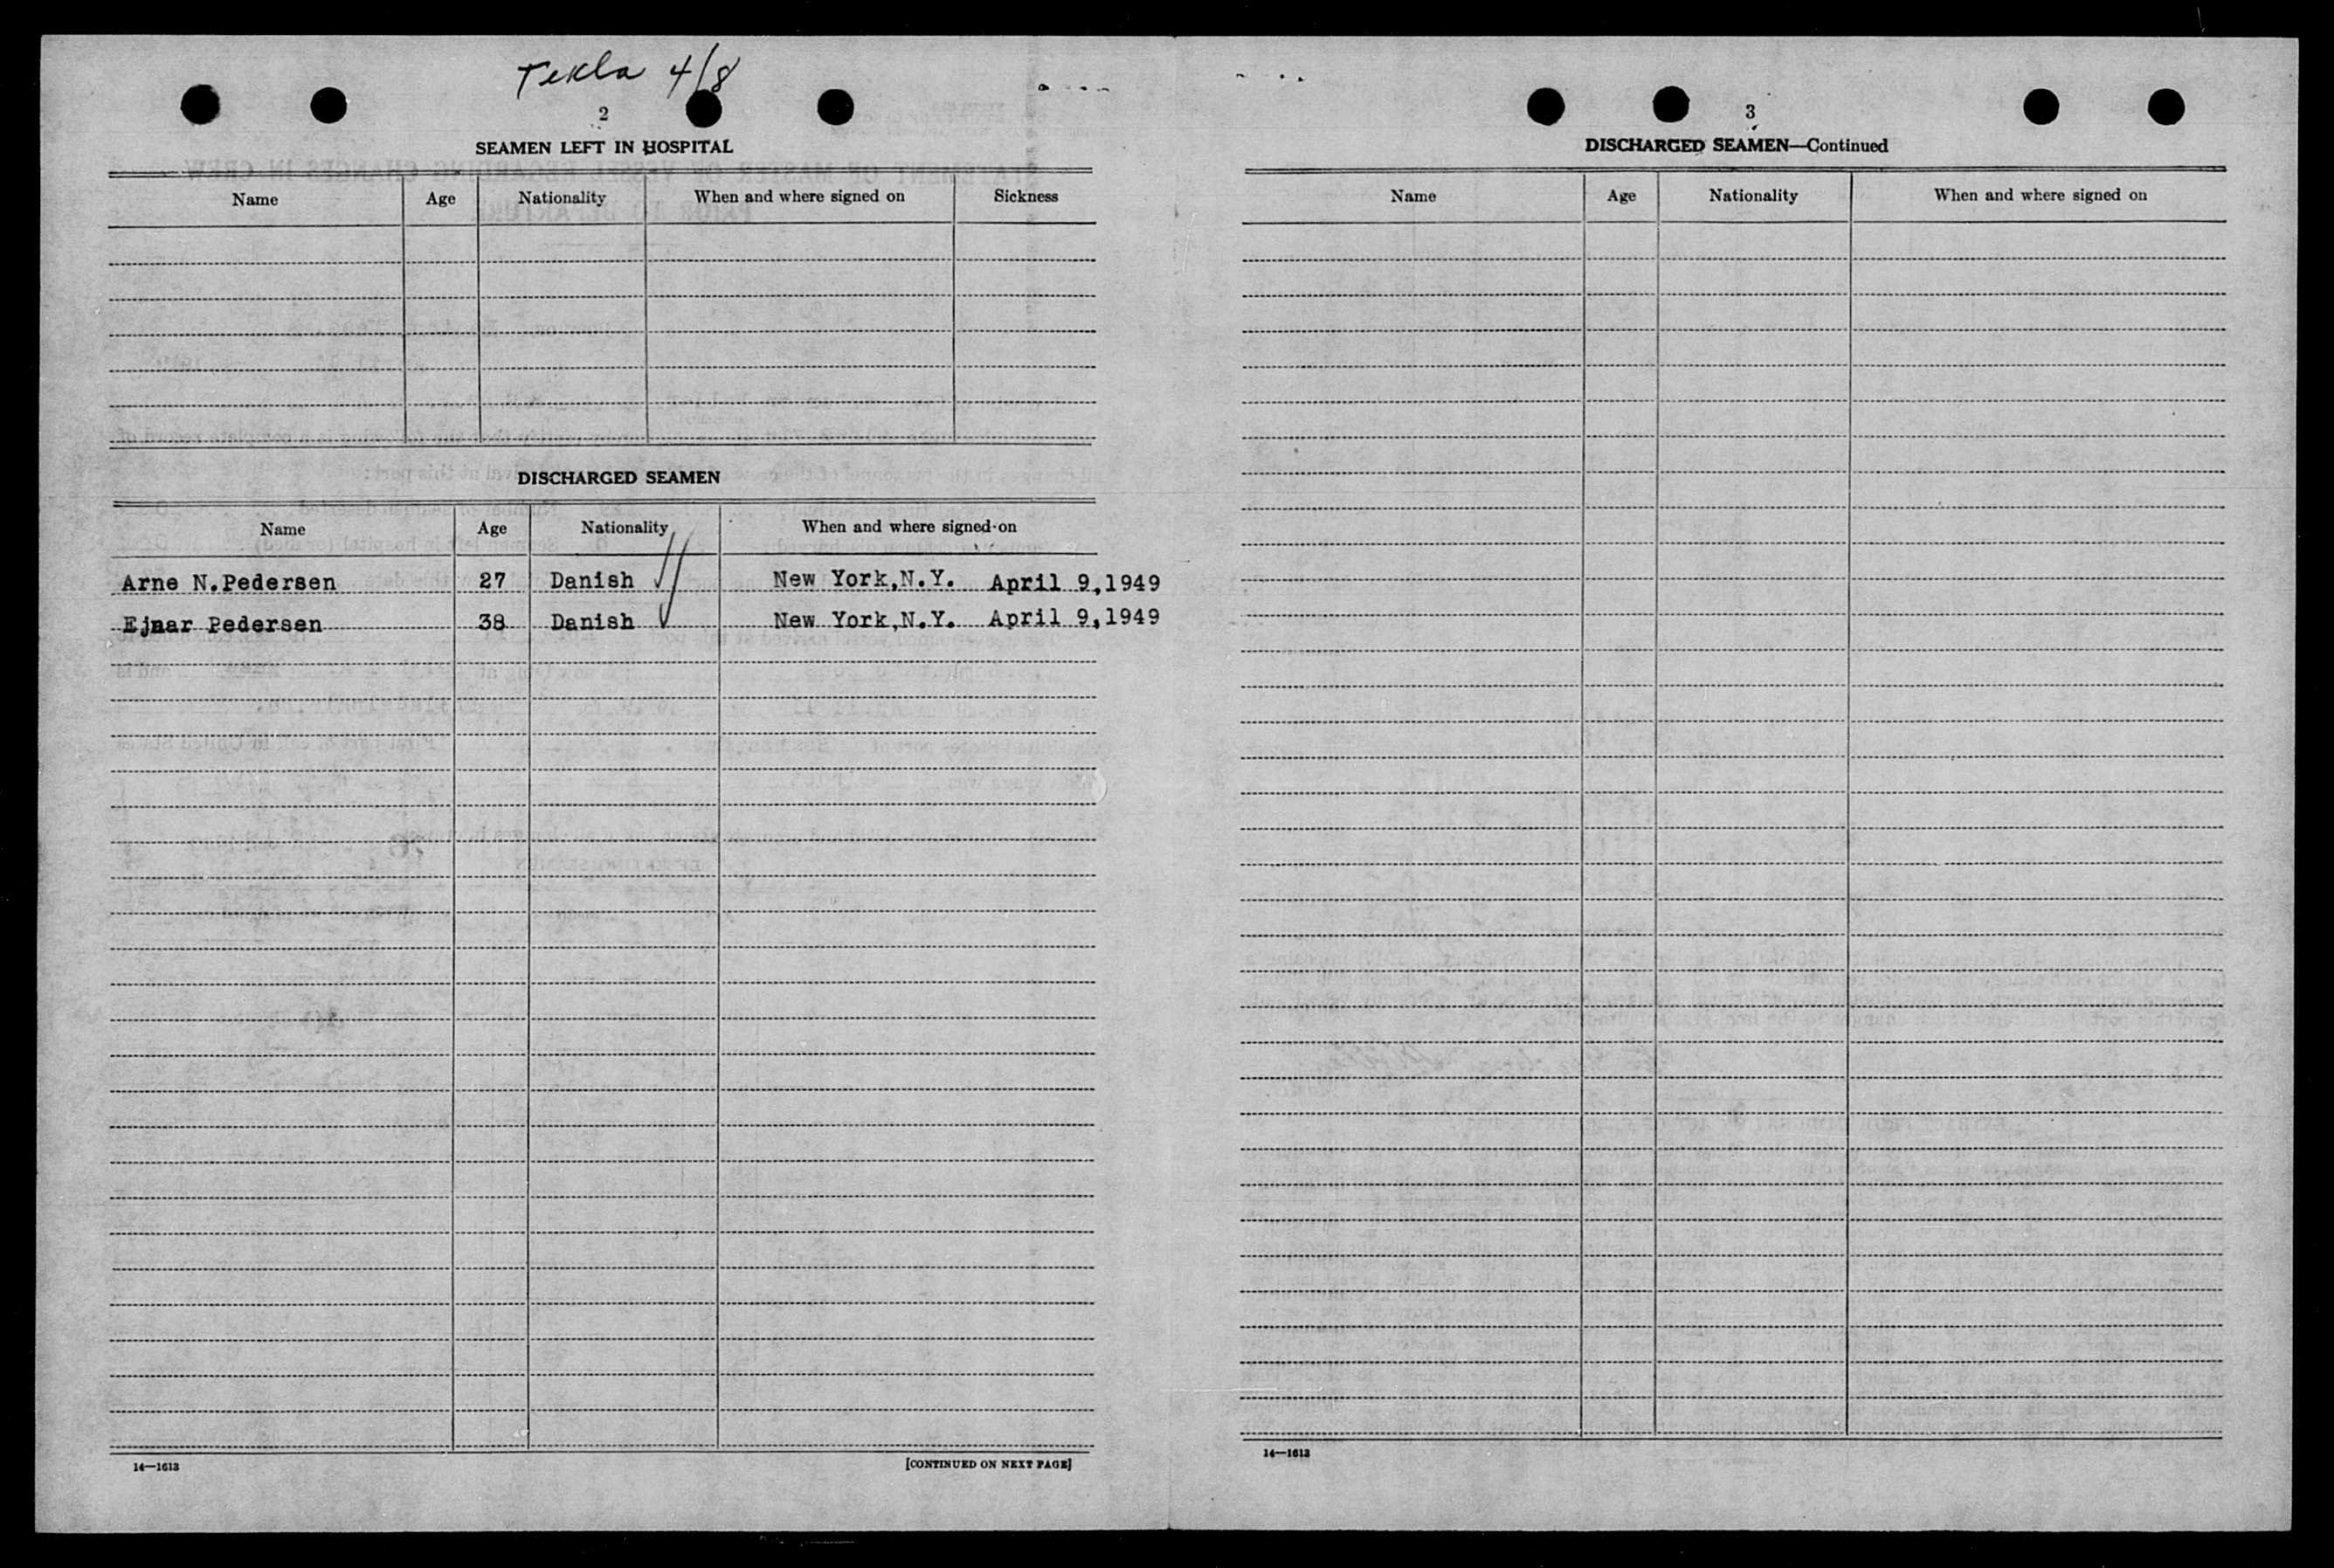 Tekla 4/8
2
SEAMEN LEFT IN HOSPITAL
Name Age Nationality When and where signed on Sickness
DISCHARGED SEAMEN
Name Age Nationality When and where signed on
Arne N.Pedersen 27 Danish New York,N.Y. April 9,1949
Ejnar Pedersen 38 Danish New York,N.Y. April 9,1949
14—1613
[CONTINUED ON NEXT PAGE]
3
DISCHARGED SEAMEN—Continued
Name Age Nationality When and where signed on
14—1613